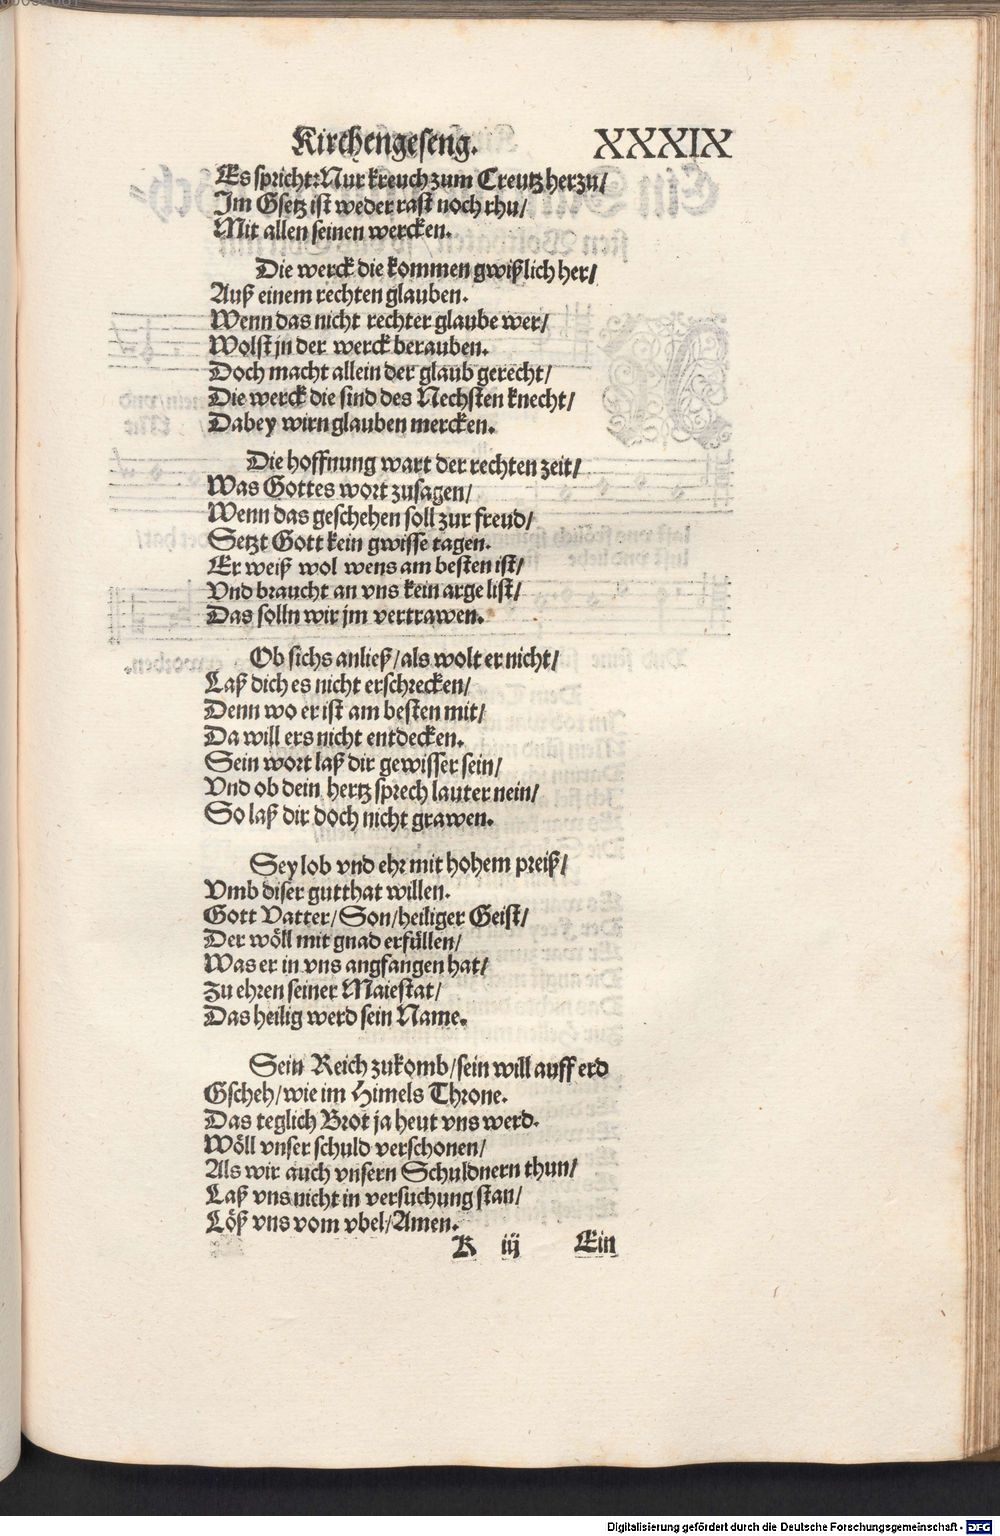 Kirchengeseng. XXXIX
Es spricht: Nur kreuch zum Creutz herzu/
Im Gsetz ist weder rast noch rhu/
Mit allen seinen wercken.
Die werck die kommen gwißlich her/
Auß einem rechten glauben.
Wenn das nicht rechter glaube wer/
Wolst jn der werck berauben.
Doch macht allein der glaub gerecht/
Die werck die sind des Nechsten knecht/
Dabey wirn glauben mercken.
Die hoffnung wart der rechten zeit/
Was Gottes wort zusagen/
Wenn das geschehen soll zur freud/
Setzt Gott kein gwisse tagen.
Er weiß wol wens am besten ist/
Vnd braucht an vns kein arge list/
Das solln wir jm vertrawen.
Ob sichs anließ/als wolt er nicht/
Laß dich es nicht erschrecken/
Denn wo er ist am besten mit/
Da will ers nicht entdecken.
Sein wort laß dir gewisser sein/
Vnd ob dein hertz sprech lauter nein/
So laß dir doch nicht grawen.
Sey lob vnd ehr mit hohem preiß/
Vmb diser gutthat willen.
Gott Vatter/Son/heiliger Geist/
Der wöll mit gnad erfüllen/
Was er in vns angfangen hat/
Zu ehren seiner Maiestat/
Das heilig werd sein Name.
Sein Reich zukomb/sein will auff erd
Gscheh/wie im Himels Throne.
Das teglich Brot ja heut vns werd.
Wöll vnser schuld verschonen/
Als wir auch vnsern Schuldnern thun/
Laß vns nicht in versuchung stan/
Löß vns vom vbel/Amen.
K iij Ein
Digitalisierung gefördert durch die Deutsche Forschungsgemeinschaft - DFG